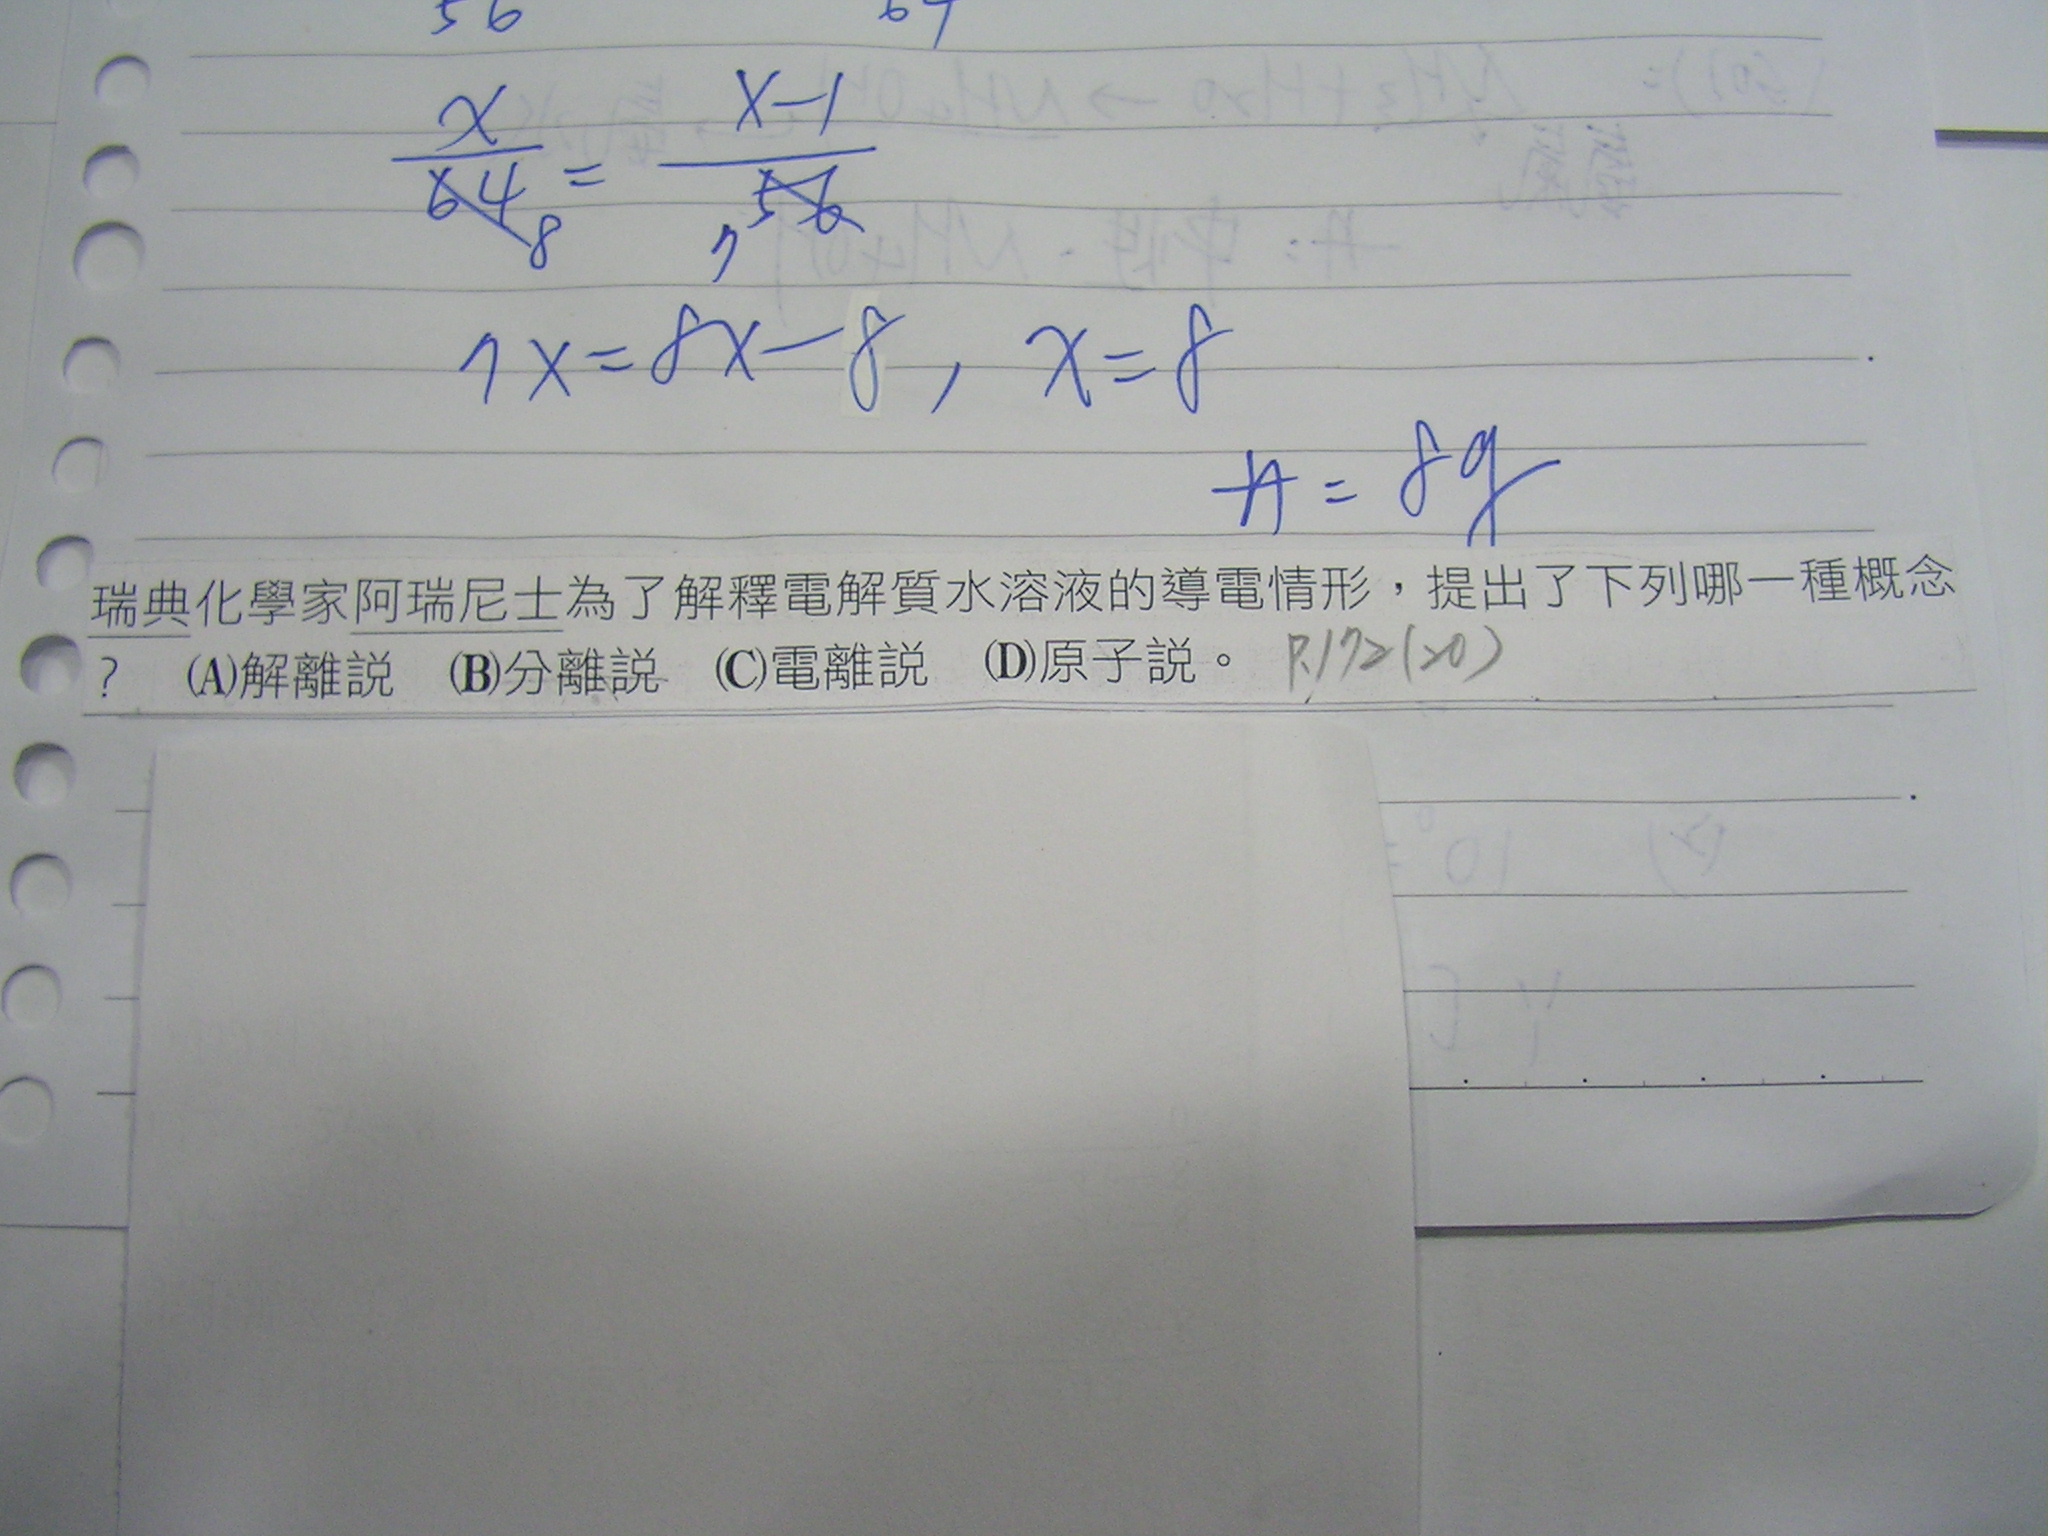 56 64
x/64 = x-1/56
8 7
7x=8x-8, x=8
A = 8g
瑞典化學家阿瑞尼士為了解釋電解質水溶液的導電情形，提出了下列哪一種概念
？ (A)解離説 (B)分離説 (C)電離説 (D)原子説。 P.172(20)